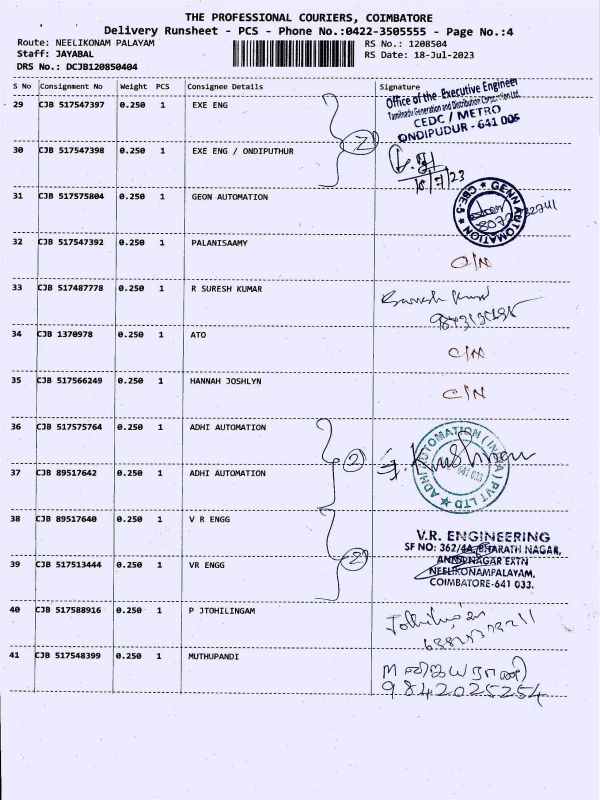 THE PROFESSIONAL COURIERS, COIMBATORE
Delivery Runsheet - PCS - Phone No.:0422-3505555 - Page No.:4
Route: NEELIKONAM PALAYAM RS No.: 1208504
Staff: JAYABAL RS Date: 18-Jul-2023
DRS No.: DCJB120850404
S No Consignment No Weight PCS Consignee Details Signature
29 CJB 517547397 0.250 1 EXE ENG
Office of the Executive Engineer
Tamilnadu Generation and Distribution Corporation Ltd.
CEDC / METRO
ONDIPUDUR - 641 005
2
30 CJB 517547398 0.250 1 EXE ENG / ONDIPUTHUR
18/7/23
31 CJB 517575804 0.250 1 GEON AUTOMATION
GENN AUTOMATION CBE-5
32 CJB 517547392 0.250 1 PALANISAAMY
C/N
33 CJB 517487778 0.250 1 R SURESH KUMAR
34 CJB 1370978 0.250 1 ATO C/N
35 CJB 517566249 0.250 1 HANNAH JOSHLYN C/N
36 CJB 517575764 0.250 1 ADHI AUTOMATION
2
ADHI AUTOMATION (INDIA) PVT LTD
641 033
37 CJB 89517642 0.250 1 ADHI AUTOMATION
38 CJB 89517640 0.250 1 V R ENGG
2
V.R. ENGINEERING
SF NO: 362/4A, BHARATH NAGAR,
ANNA NAGAR EXTN
NEELIKONAMPALAYAM,
COIMBATORE-641 033.
39 CJB 517513444 0.250 1 VR ENGG
40 CJB 517588916 0.250 1 P JTOHILINGAM
41 CJB 517548399 0.250 1 MUTHUPANDI
9842025254